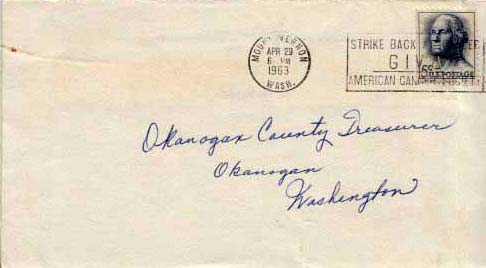 MOUNT VERNON
APR 29
6 PM
1963
WASH.
STRIKE BACK
GIVE
AMERICAN CANCER SOCIETY
5c U.S. POSTAGE
Okanogan County Treasurer
Okanogan
Washington